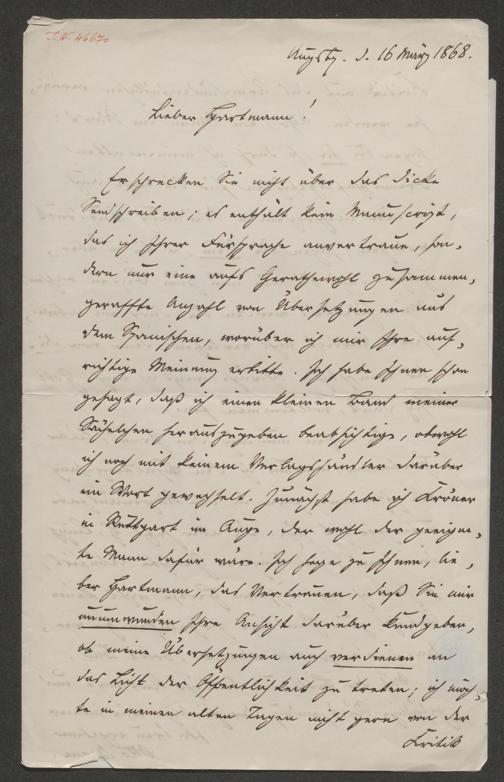 I.N. 46670
Augsbg. d. 16 März 1868.
Lieber Hartmann!
Erschrecken Sie nicht über das dicke
Sendschreiben; es enthält kein Manuscript,
das ich Ihrer Fürsprache anvertraue, son-
dern nur eine aufs Gerathewohl zusammen-
geraffte Anzahl von Übersetzungen aus
dem Spanischen, worüber ich mir Ihre auf-
richtige Meinung erbitte. Ich habe Ihnen schon
gesagt, daß ich einen kleinen Band meiner
Sächelchen herauszugeben beabsichtige, obwohl
ich noch mit keinem Verlagshändler darüber
ein Wort gewechselt. Zunächst habe ich Kröner
in Stuttgart im Auge, der wohl der geeigne-
te Mann dafür wäre. Ich hege zu Ihnen, lie-
ber Hartmann, das Vertrauen, daß Sie mir
unumwunden Ihre Ansicht darüber kundgeben,
ob meine Übersetzungen auch verdienen an
das Licht der Öffentlichkeit zu treten; ich möch-
te in meinen alten Tagen nicht gern von der
Kritik